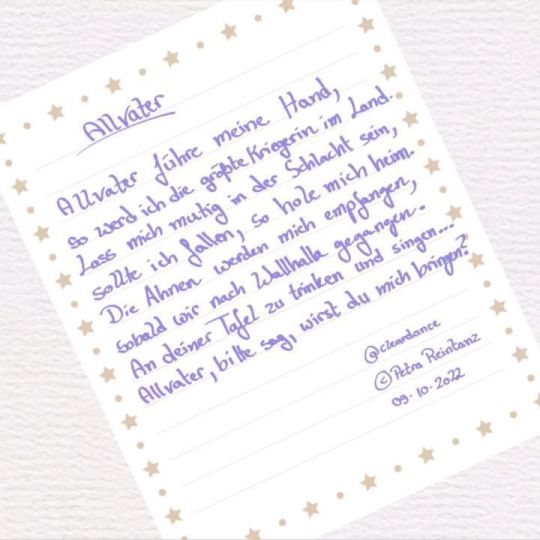 Allvater
Allvater führe meine Hand,
so werd ich die größte Kriegerin im Land.
Lass mich mutig in der Schlacht sein,
sollte ich fallen, so hole mich heim.
Die Ahnen werden mich empfangen,
sobald wir nach Wallhalla gegangen.
An deiner Tafel zu trinken und singen...
Allvater, bitte sag, wirst du mich bringen?
@cleardance
©Petra Reintanz
09.10.2022